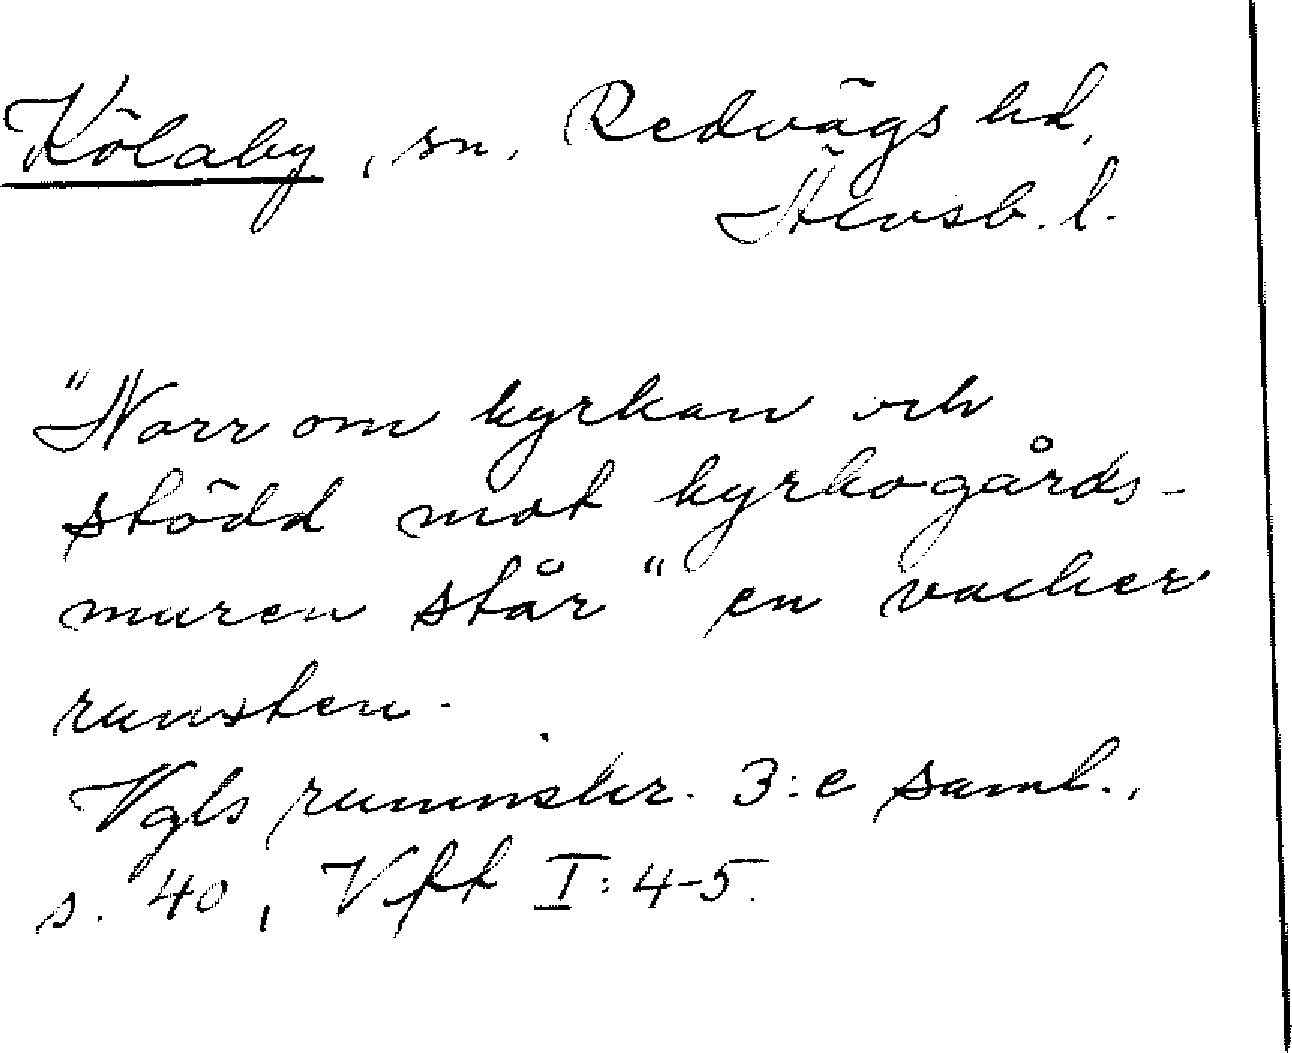 Kölaby, sn, Redvägs hd,
Älvsb. l.
"Norr om kyrkan och
stödd mot kyrkogårds-
muren står" en vacker
runsten.
Vgls runinskr. 3:e saml.,
s. 40, Vfft I: 4-5.